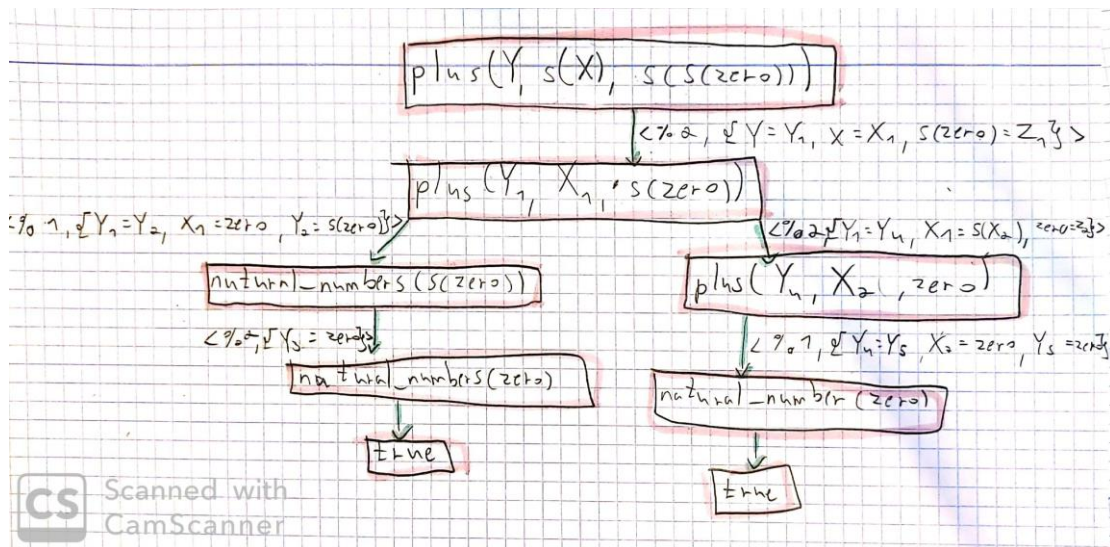 plus(Y, s(X), s(s(zero)))
<%2, {Y=Y₁, X=X₁, s(zero)=Z₁}>
plus(Y₁, X₁, s(zero))
<%1, {Y₁=Y₂, X₁=zero, Y₂=s(zero)}>
<%2, {Y₁=Y₄, X₁=s(X₂), zero=Z₂}>
natural_numbers(s(zero))
plus(Y₄, X₂, zero)
<%2, {Y₃=zero}>
<%1, {Y₄=Y₅, X₂=zero, Y₅=zero}
natural_numbers(zero)
natural_number(zero)
true
true
CS Scanned with
CamScanner